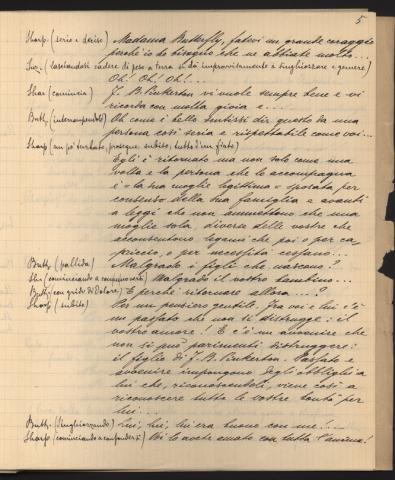 5
Sharp: (serio e deciso) Madama Butterfly, fatevi un grande coraggio
perchè io ho bisogno che ne abbiate molto...
Suz: (lasciandosi cadere di peso a terra si dà improvvisamente a singhiozzare e gemere)
Oh! Oh! Oh!...
Shar (comincia) J. B. Pinkerton vi vuole sempre bene e vi
ricorda con molta gioia e...
Butt: (interrompendolo) Oh come è bello sentirsi dir questo da una
persona così seria e rispettabile come voi...
Sharp (un po' turbato, prosegue, subito, tutto d'un fiato)
Egli è ritornato ma non solo come una
volta e la persona che lo accompagna
è la sua moglie legittima sposata per
consenso della sua famiglia e avanti
a leggi che non ammettono che una
moglie sola, diversa dalle vostre che
acconsentono legami che poi o per ca
priccio, o per necessità cessano...
Butt: (pallida) Malgrado i figli che nascono?
Sh: (cominciando a commuoversi) Malgrado il vostro bambino...
Butt: (con grido di dolore) E perchè ritornare allora....?
Sharp (subito) Per un pensiero gentile. Tra voi e lui c'è
un passato che non si distrugge: il
vostro amore! E c'è un avvenire che
non si può parimenti distruggere:
il figlio di J. B. Pinkerton. Passato e
avvenire impongono degli obblighi a
lui che, riconoscentoli, viene così a
riconoscere tutta la vostra bontà per
lui...
Butt: (singhiozzando) Lui, lui, lui era buono con me!...
Sharp (cominciando a confondersi) Voi lo avete amato con tutta l'anima!